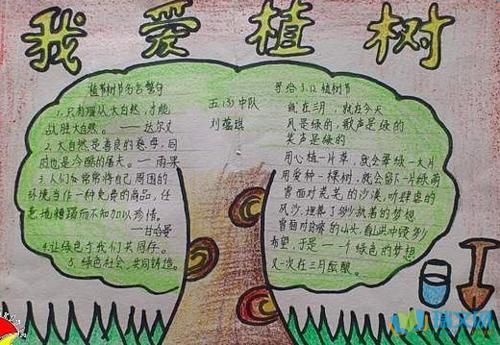 我爱植树
植树节名言警句
1.只有服从大自然,才能
战胜大自然。——达尔文
2.大自然是善良的慈母,同
时也是冷酷的屠夫。——雨果
3.人们常常将自己周围的
环境当作一种免费的商品,任
意地糟蹋而不知加以珍惜。
——甘哈曼
4.让绿色与我们共同存。
5.绿色社会,共同铸造。
五(3)中队
刘蕴琪
写给3.12植树节
就在三月,就在今天
风是绿的,歌声是绿的
笑声是绿的
用心植一片草,就会茅绿一大片
用爱种一棵树,就会留下一片绿荫
当面对茫茫的沙漠,听肆虐的
风沙,埋葬了多少执著的梦想
当面对
希望,于是一个绿色的梦想
又一次在三月酝酿。